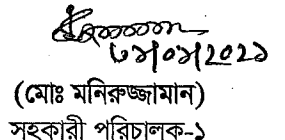 ৩১/০১/২০২১
(মোঃ মনিরুজ্জামান)
সহকারী পরিচালক-১